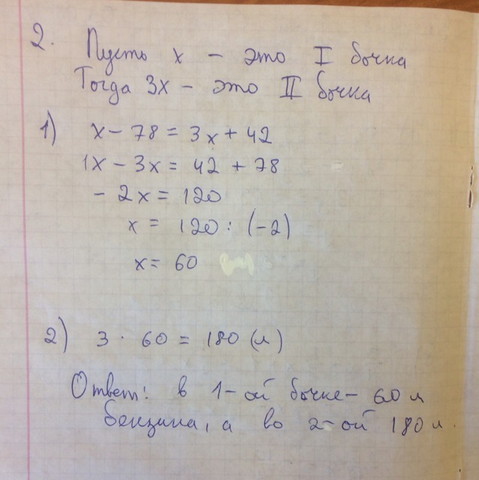 2. Пусть x – это I бочка
Тогда 3x – это II бочка
1) x – 78 = 3x + 42
1x – 3x = 42 + 78
– 2x = 120
x = 120 : (–2)
x = 60
2) 3 · 60 = 180 (л)
Ответ: в 1-ой бочке – 60 л
бензина, а во 2-ой 180 л.